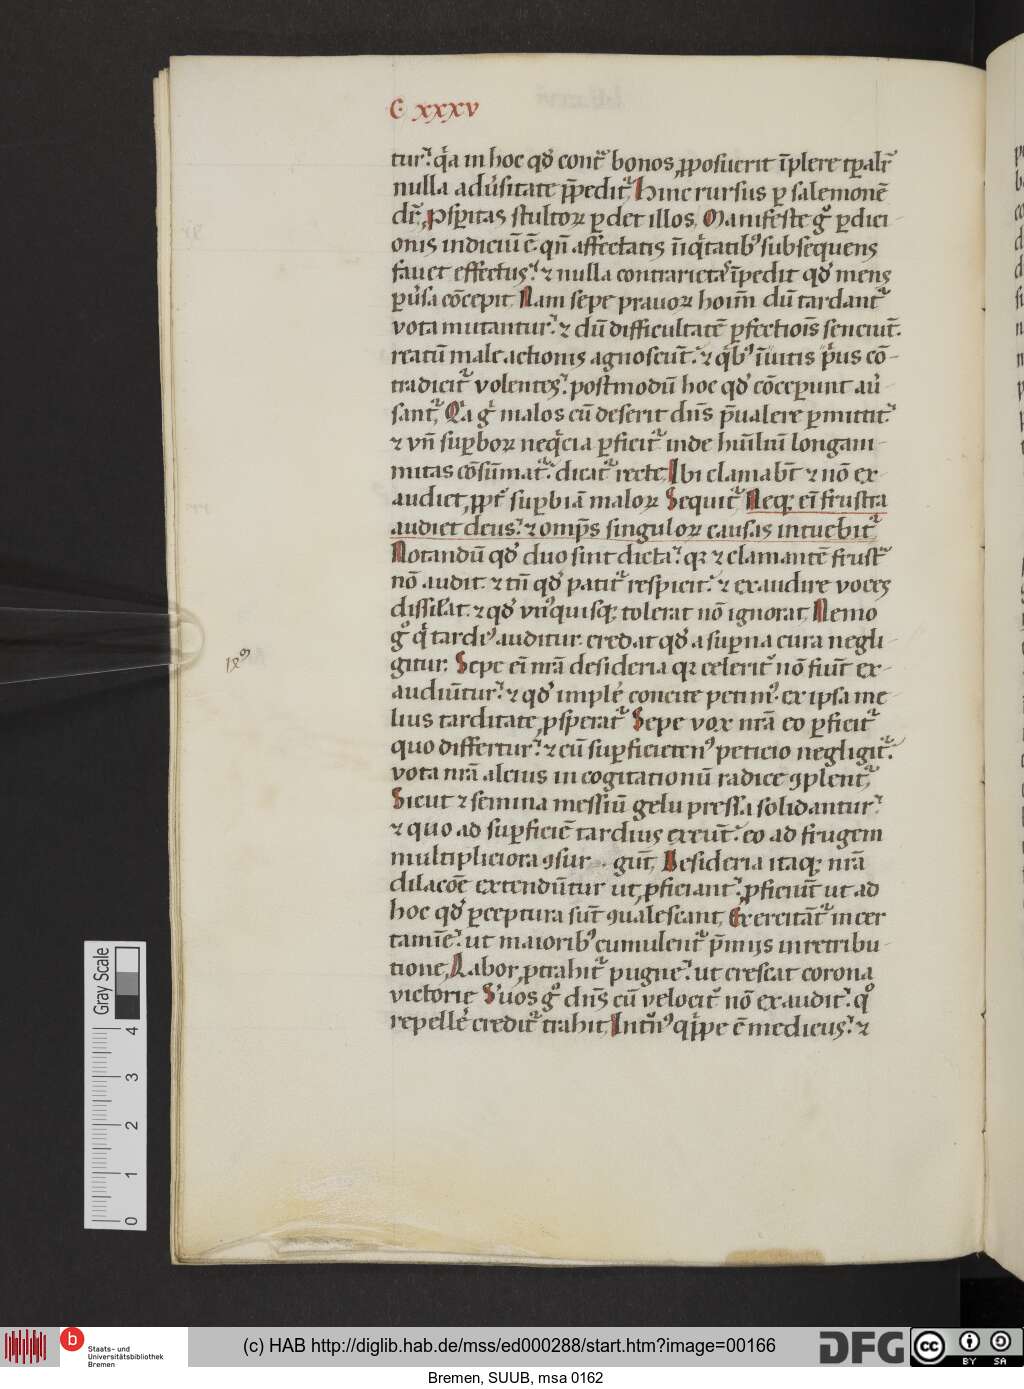 C· xxxv
tur. q̓a in hoc qd̓ cont̓ bonos ꝓposuerit īplere tꝑalr̄
nulla adu̓sitate p̄pedit᷑. Hinc rursus ꝑ salemonē
dr̄. ꝓsꝑitas stultoꝝ ꝑdet illos. Manifeste g̊ ꝑdici
onis indiciū ē. qn̄ affectatis īiq̓tatibꝰ subsequens
fauet effectus. ⁊ nulla contrarietas īpedit qd̓ mens
ꝑu̓sa cōcepit. Nam sepe prauoꝝ hoīm dū tardant᷑
vota mutantur. ⁊ dū difficultatē ꝑfectiois̄ senciūt.
reatū male actionis agnoscūt. ⁊ q̓bꝰ īuitis p̓us cō-
tradicit᷑ volentes. postmodū hoc qd̓ cōceperunt au̓
sant᷑. Q̓a g̊ malos cū deserit dn̄s p̄ualere ꝑmittit᷑.
⁊ vn̄ suꝑboꝝ neq̓cia ꝑficit᷑. inde hūiliū longani-
mitas cōsūmat᷑. dicat᷑ recte. Ibi clamabt̄ ⁊ nō ex-
audiet. ꝓpt̓ suꝑbiā maloꝝ. Sequit᷑. Neqꝫ eī frustra
audiet deus. ⁊ omp̄s singuloꝝ causas intuebit᷑.
Notandū qd̓ duo sint dicta. qꝛ ⁊ clamantē frust̓
nō audit. ⁊ tn̄ qd̓ patit᷑ respicit. ⁊ exaudire voces
dissilat. ⁊ qd̓ vn̄ꝰquisqꝫ tolerat nō ignorat. Nemo
g̊ q̓ tardeꝰ auditur. credat qd̓ a suꝑna cura negli
gitur. Sepe eī nr̄a desideria qꝛ celerit᷑ nō fiūt ex-
audiūtur. ⁊ qd̓ imple̓ concite petimꝰ. ex ipsa me
lius tarditate ꝓsꝑat᷑. Sepe vox nr̄a eo ꝑficit᷑
quo differtur. ⁊ cū suꝑficietenꝰ peticio negligit᷑.
vota nr̄a alcius in cogitationū radice ꝯplent᷑.
Sicut ⁊ semina messiū gelu pressa solidantur.
⁊ quo ad suꝑficiē tardius exeūt. eo ad frugem
multipliciora ꝯsur gūt. Desideria itaqꝫ nr̄a
dilacōe extendūtur ut ꝓficiant. ꝓficiūt ut ad
hoc qd̓ ꝑceptura sūt ꝯualescant. Exercitāt᷑ in cer
tamīe. ut maioribꝰ cumulent᷑ p̄mijs in retribu-
tione. Labor ꝓtrahit᷑ pugne. ut crescat corona
victorie. Suos g̊ dn̄s cū velocit᷑ nō exaudit. q̊
repelle̓ credit᷑ trahit. Int̓nꝰ q̓ppe ē medicus. ⁊
Gray Scale
4
3
2
1
0
Staats- und
Universitätsbibliothek
Bremen
(c) HAB http://diglib.hab.de/mss/ed000288/start.htm?image=00166
DFG
cc
BY SA
Bremen, SUUB, msa 0162